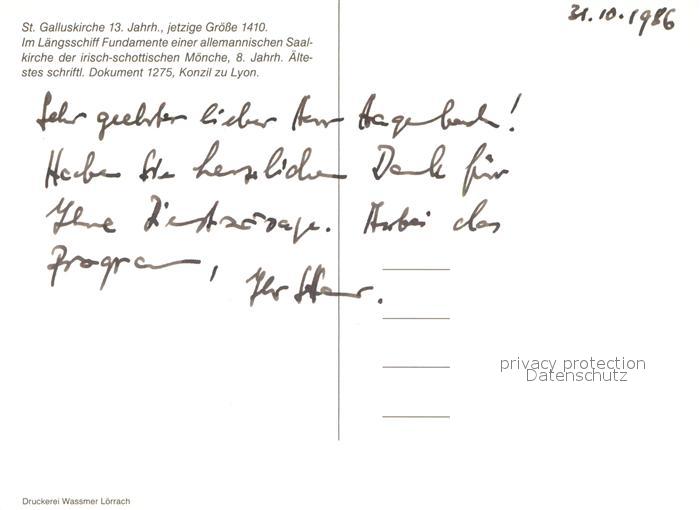 31.10.1986
St. Galluskirche 13. Jahrh., jetzige Größe 1410.
Im Längsschiff Fundamente einer allemannischen Saal-
kirche der irisch-schottischen Mönche, 8. Jahrh. Älte-
stes schriftl. Dokument 1275, Konzil zu Lyon.
Sehr geehrter lieber Herr Hagenbach!
Haben Sie herzlichen Dank für
Ihre Dienstzusage. Anbei das
Programm,
Ihr
privacy protection
Datenschutz
Druckerei Wassmer Lörrach